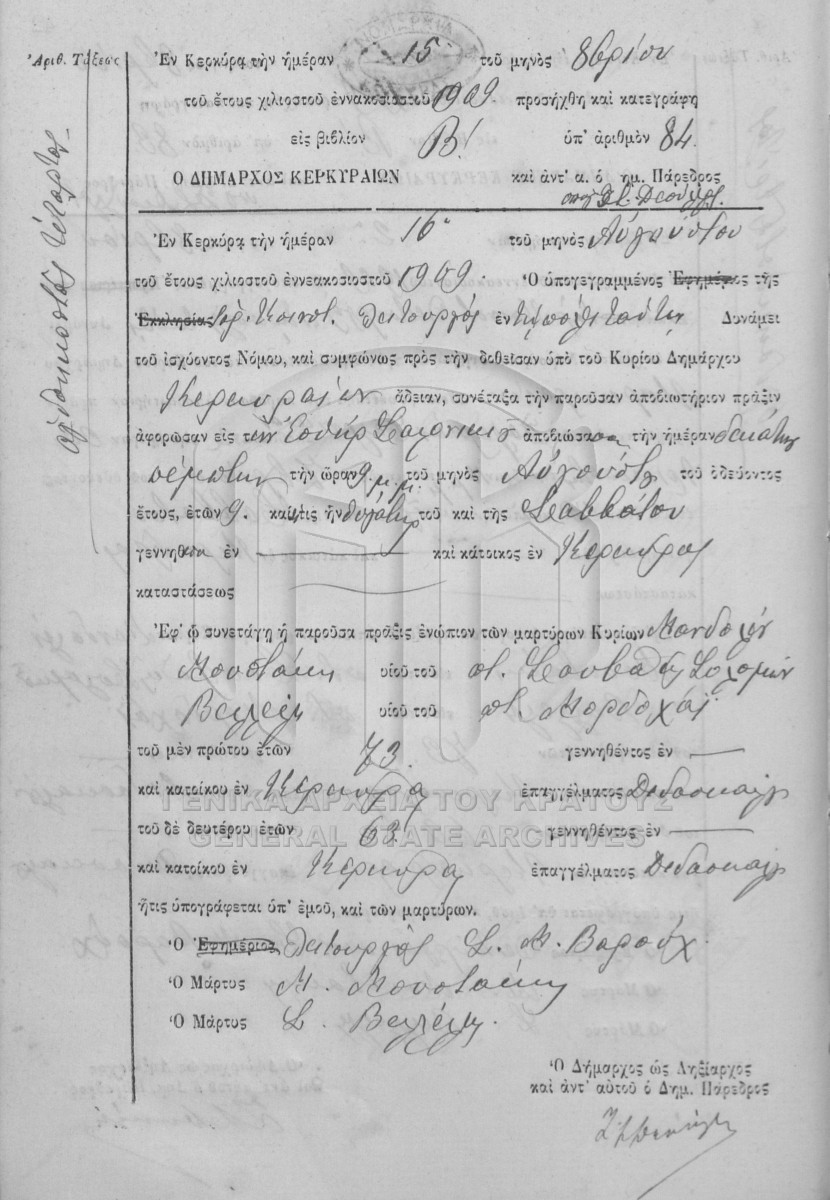 Ἀριθ. Τάξεως
ὀγδοηκοστὸς τέταρτος
Ἐν Κερκύρᾳ τὴν ἡμέραν 15 τοῦ μηνὸς 8βρίου
τοῦ ἔτους χιλιοστοῦ ἐννακοσιοστοῦ 1909 προσήχθη καὶ κατεγράφη
εἰς βιβλίον Β! ὑπ' ἀριθμὸν 84.
Ο ΔΗΜΑΡΧΟΣ ΚΕΡΚΥΡΑΙΩΝ καὶ ἀντ' α. ὁ δημ. Πάρεδρος
Ἐν Κερκύρᾳ τὴν ἡμέραν 16 τοῦ μηνὸς Αὐγούστου
τοῦ ἔτους χιλιοστοῦ ἐννεακοσιοστοῦ 1909. Ὁ ὑπογεγραμμένος Ἐφημέριος τῆς
Ἐκκλησίας Λειτουργὸς ἐν Δυνάμει
τοῦ ἰσχύοντος Νόμου, καὶ συμφώνως πρὸς τὴν δοθεῖσαν ὑπὸ τοῦ Κυρίου Δημάρχου
Κερκυραίων ἄδειαν, συνέταξα τὴν παροῦσαν ἀποβιωτήριον πρᾶξιν
ἀφορῶσαν εἰς τὴν Ἐσθὴρ ἀποβιώσασα τὴν ἡμέραν δεκάτην
πέμπτην τὴν ὥραν 9 μ.μ. τοῦ μηνὸς Αὐγούστου τοῦ ὁδεύοντος
ἔτους, ἐτῶν 9. καὶ ἥτις ἦν θυγάτηρ τοῦ καὶ τῆς Σαββάτου
γεννηθεῖσα ἐν — καὶ κάτοικος ἐν Κερκύρᾳ
καταστάσεως
Ἐφ' ᾧ συνετάγη ἡ παροῦσα πρᾶξις ἐνώπιον τῶν μαρτύρων Κυρίων
Μουστάκη υἱοῦ τοῦ π. Σολομὼν
Βελλέλη υἱοῦ τοῦ π. Μορδοχάϊ
τοῦ μὲν πρώτου ἐτῶν 73. γεννηθέντος ἐν —
καὶ κατοίκου ἐν Κέρκυρα ἐπαγγέλματος Διδάσκαλος
τοῦ δὲ δευτέρου ἐτῶν 63 γεννηθέντος ἐν —
καὶ κατοίκου ἐν Κέρκυρα ἐπαγγέλματος Διδάσκαλος
ἥτις ὑπογράφεται ὑπ' ἐμοῦ, καὶ τῶν μαρτύρων.
Ὁ Ἐφημέριος Λειτουργὸς Σ. Μ. Βαρούχ.
Ὁ Μάρτυς Μ. Μουστάκη
Ὁ Μάρτυς Σ. Βελλέλη.
Ὁ Δήμαρχος ὡς Ληξίαρχος
καὶ ἀντ' αὐτοῦ ὁ Δημ. Πάρεδρος
ΓΕΝΙΚΑ ΑΡΧΕΙΑ ΤΟΥ ΚΡΑΤΟΥΣ
GENERAL STATE ARCHIVES